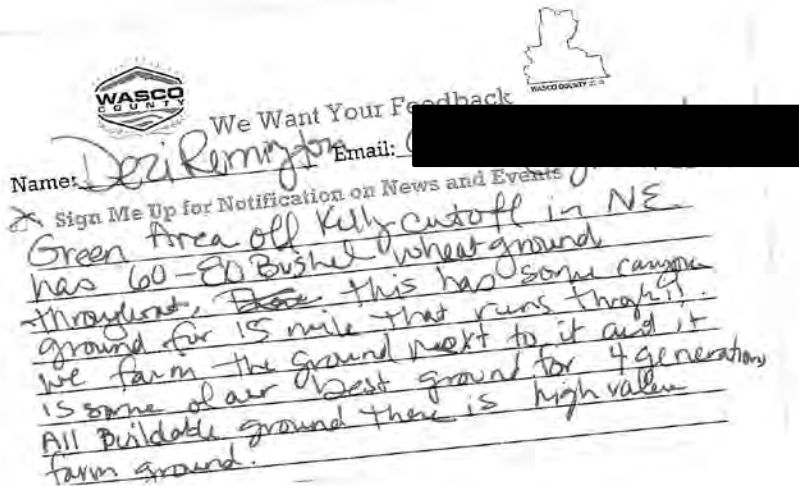 WASCO
COUNTY
WASCO COUNTY
We Want Your Feedback
Name: Dezi Remington Email:
Sign Me Up for Notification on News and Events
Green Area off Kelly cutoff in NE
has 60-80 Bushel wheat ground
throughout, this has some canyon
ground for 15 mile that runs through it.
we farm the ground next to it and it
is some of our best ground for 4 generations
All Buildable ground there is high value
farm ground.